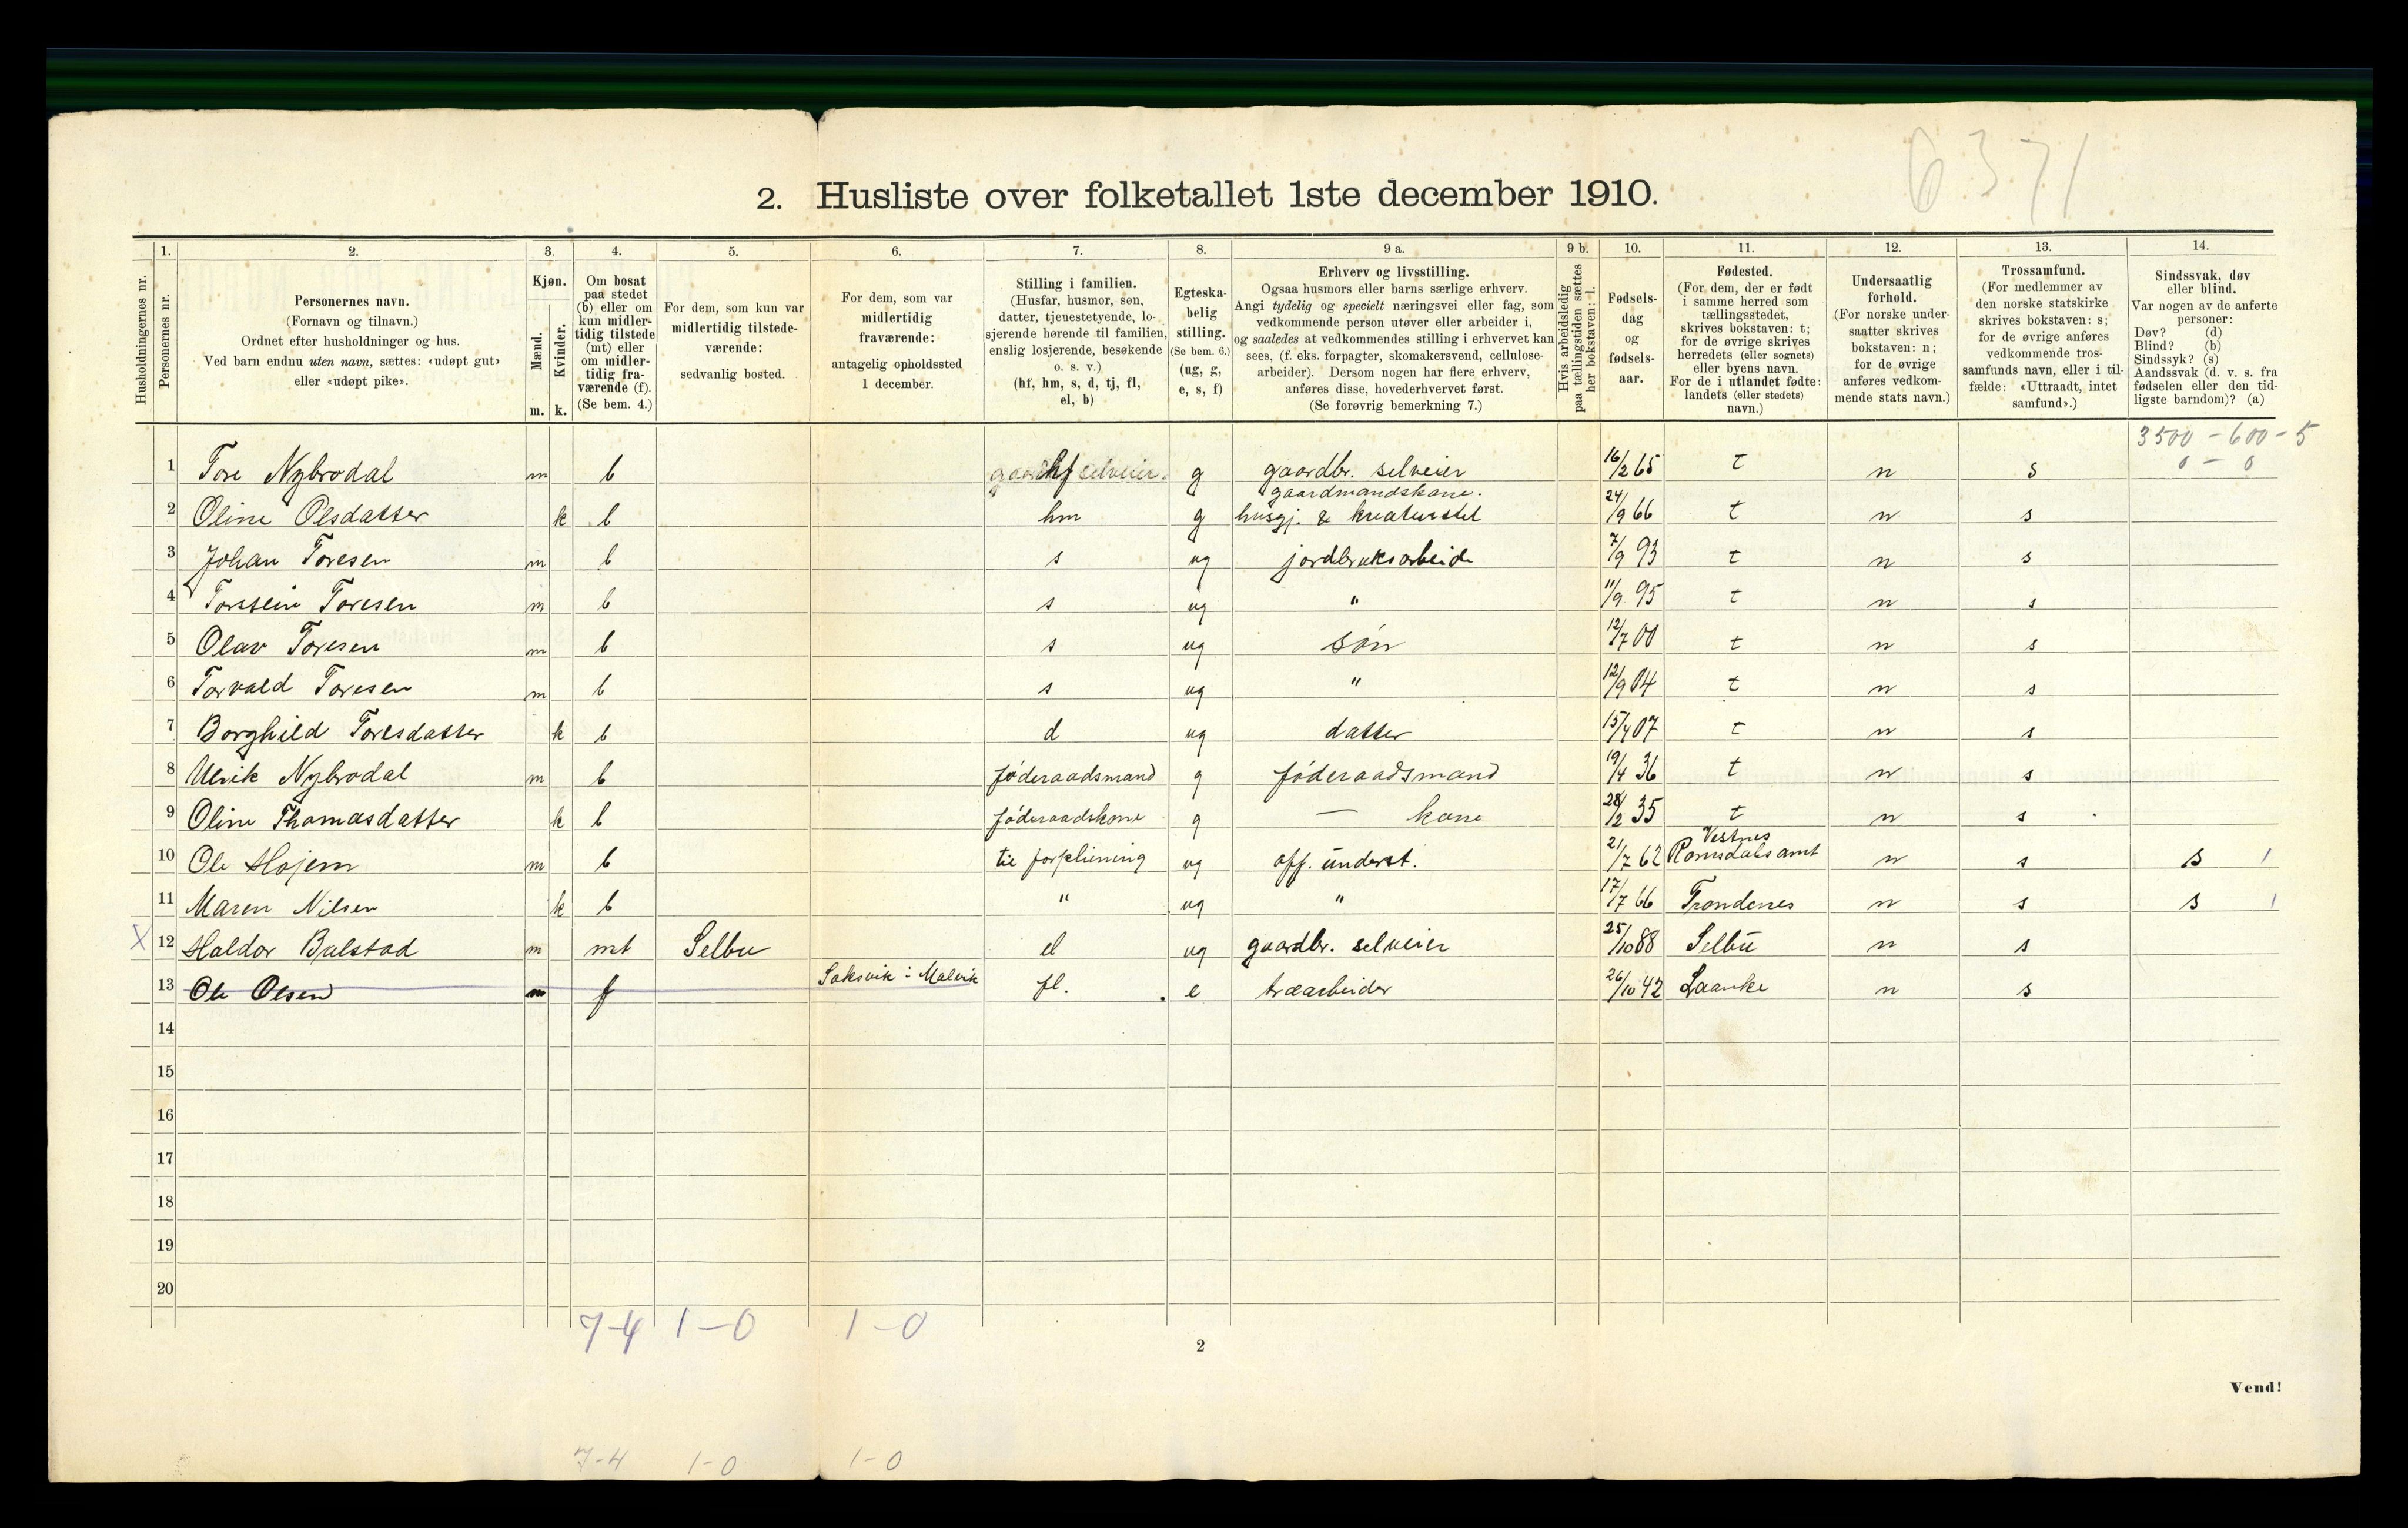 6371
2. Husliste over folketallet 1ste december 1910.
Husholdningernes nr.
1. Personernes nr.
2. Personernes navn.
(Fornavn og tilnavn.)
Ordnet efter husholdninger og hus.
Ved barn endnu uten navn, sættes: «udøpt gut»
eller «udøpt pike».
3. Kjøn.
Mænd. Kvinder.
m. k.
4. Om bosat
paa stedet
(b) eller om
kun midler-
tidig tilstede
(mt) eller
om midler-
tidig fra-
værende (f).
(Se bem. 4.)
5. For dem, som kun var
midlertidig tilstede-
værende:
sedvanlig bosted.
6. For dem, som var
midlertidig
fraværende:
antagelig opholdssted
1 december.
7. Stilling i familien.
(Husfar, husmor, søn,
datter, tjenestetyende, lo-
sjerende hørende til familien,
enslig losjerende, besøkende
o. s. v.)
(hf, hm, s, d, tj, fl,
el, b)
8. Egteska-
belig
stilling.
(Se bem. 6.)
(ug, g,
e, s, f)
9 a. Erhverv og livsstilling.
Ogsaa husmors eller barns særlige erhverv.
Angi tydelig og specielt næringsvei eller fag, som
vedkommende person utøver eller arbeider i,
og saaledes at vedkommendes stilling i erhvervet kan
sees, (f. eks. forpagter, skomakersvend, cellulose-
arbeider). Dersom nogen har flere erhverv,
anføres disse, hovederhvervet først.
(Se forøvrig bemerkning 7.)
9 b. Hvis arbeidsledig
paa tællingstiden sættes
her bokstaven: l.
10. Fødsels-
dag
og
fødsels-
aar.
11. Fødested.
(For dem, der er født
i samme herred som
tællingsstedet,
skrives bokstaven: t;
for de øvrige skrives
herredets (eller sognets)
eller byens navn.
For de i utlandet fødte:
landets (eller stedets)
navn.)
12. Undersaatlig
forhold.
(For norske under-
saatter skrives
bokstaven: n;
for de øvrige
anføres vedkom-
mende stats navn.)
13. Trossamfund.
(For medlemmer av
den norske statskirke
skrives bokstaven: s;
for de øvrige anføres
vedkommende tros-
samfunds navn, eller i til-
fælde: «Uttraadt, intet
samfund».)
14. Sindssvak, døv
eller blind.
Var nogen av de anførte
personer:
Døv? (d)
Blind? (b)
Sindssyk? (s)
Aandssvak (d. v. s. fra
fødselen eller den tid-
ligste barndom)? (a)
3500 - 600 - 5
0 - 0
1 Tore Nybrodal m b hf g gaardbr. selveier 16/2 65 t n s
gaardmandskone.
2 Oline Olsdatter k b hm g husgj. & kreaturstel 24/9 66 t n s
3 Johan Toresen m b s ug jordbruksarbeide 7/9 93 t n s
4 Torstein Toresen m b s ug " 11/9 95 t n s
5 Olav Toresen m b s ug søn 12/7 00 t n s
6 Torvald Toresen m b s ug " 12/9 04 t n s
7 Borghild Toresdatter k b d ug datter 15/4 07 t n s
8 Ulrik Nybrodal m b føderaadsmand g føderaadsmand 19/4 36 t n s
9 Oline Thomasdatter k b føderaadskone g — kone 28/2 35 t n s
Vestnes
10 Ole Hojem m b til forpleining ug off. underst. 21/7 62 Romsdals amt n s s 1
11 Maren Nilsen k b " ug " 17/7 66 Trondenes n s s 1
X 12 Haldor Balstad m mt Selbu el ug gaardbr. selveier 25/10 88 Selbu n s
13 Ole Olsen m f Saksvik i Malvik fl. e træarbeider 26/10 42 Laanke n s
14
15
16
17
18
19
20
7-4 1-0 1-0
2
Vend!
7-4 1-0 1-0